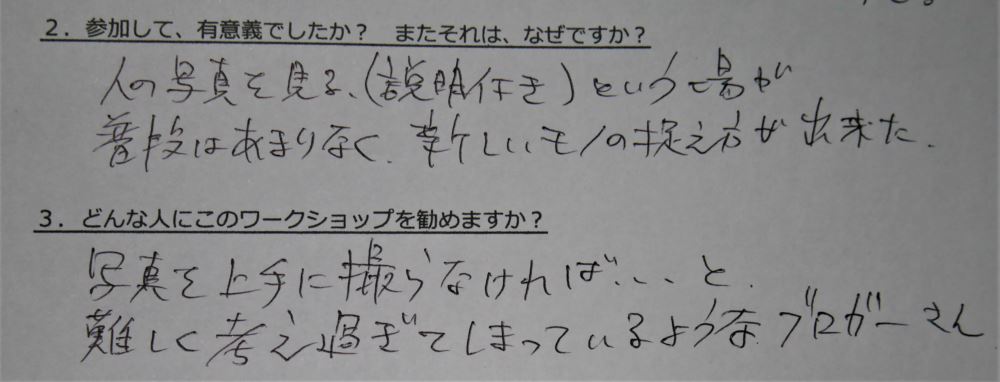 ２．参加して、有意義でしたか？　またそれは、なぜですか？
人の写真を見る、(説明付き)という場が
普段はあまりなく、新しいモノの捉え方が出来た。
３．どんな人にこのワークショップを勧めますか？
写真を上手に撮らなければ、、、と、
難しく考え過ぎてしまっているような ブロガーさん